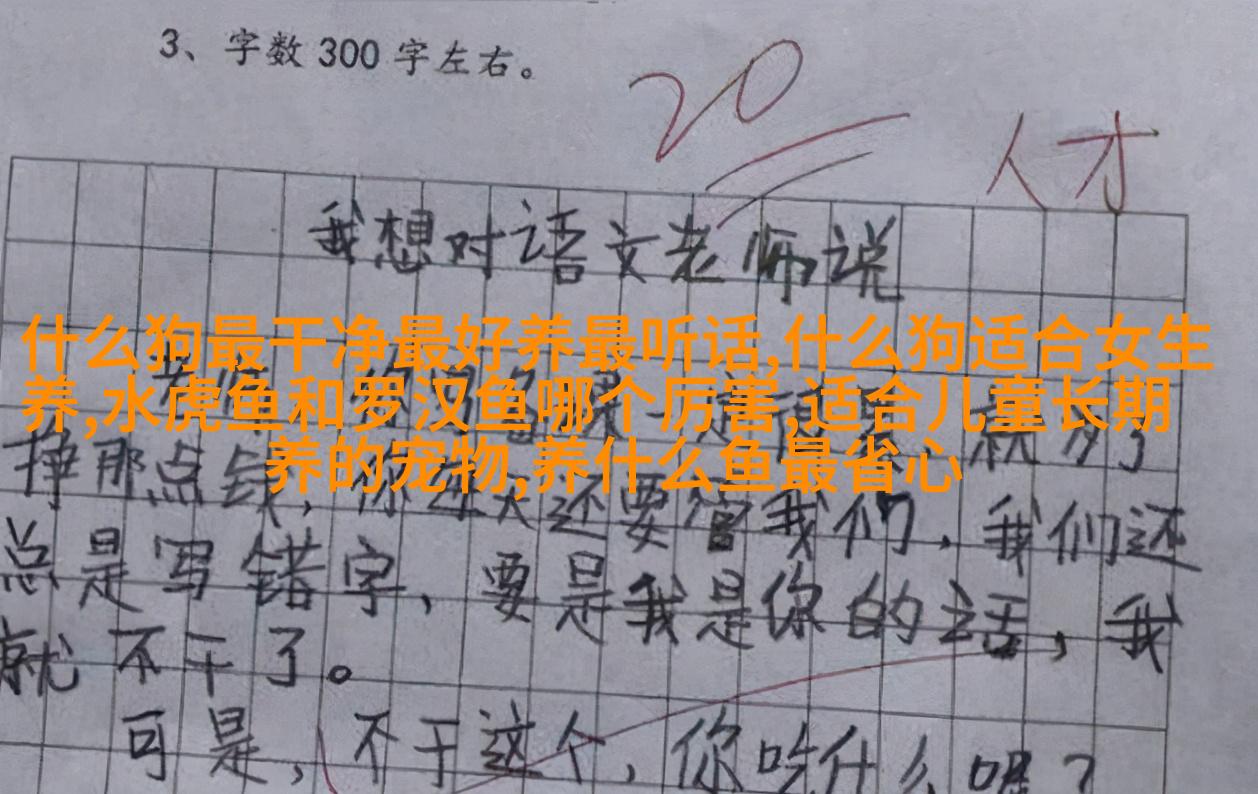 3、字数 300 字左右。
20
人才
我想对语文老师说
什么狗最干净最好养最听话,什么狗适合女生
养,水虎鱼和罗汉鱼哪个厉害,适合儿童长期
养的宠物,养什么鱼最省心
挣那点钱,你每天还要管我们,我们还
总是写错字,要是我是你的话,我
就不干了。
可是,不干这个,你吃什么呢?